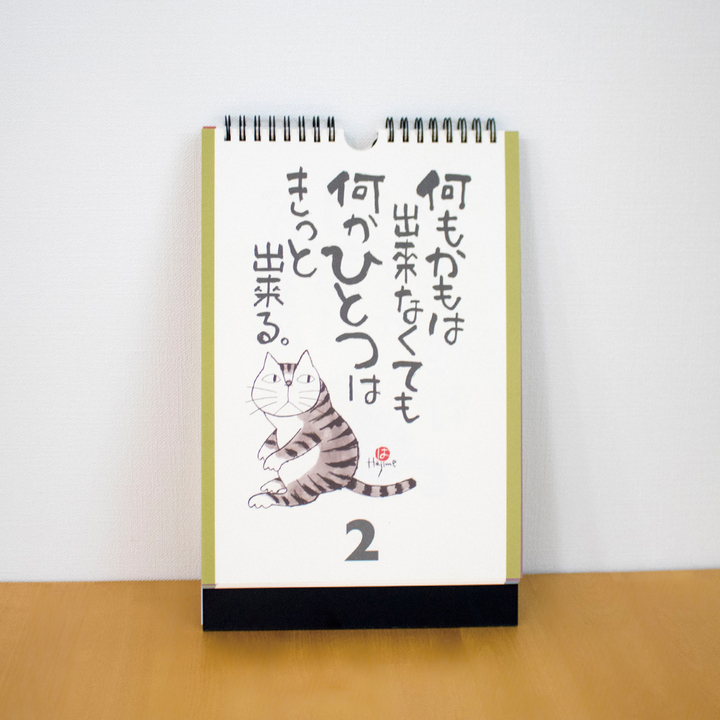 何もかもは
出来なくても
何かひとつは
きっと
出来る。
は
Hajime
2